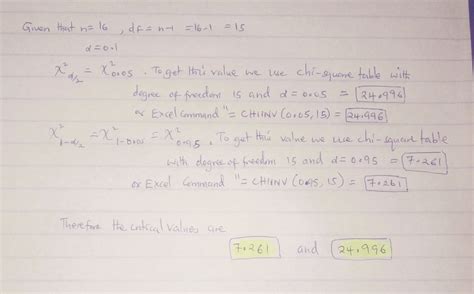 Given that n = 16 , df = n-1 = 16-1 = 15
α = 0.1
χ²α/2 = χ²0.05 . To get this value we use chi-square table with
degree of freedom 15 and α = 0.05 = 24.996
or Excel Command "= CHIINV (0.05, 15) = 24.996
χ²1-α/2 = χ²1-0.05 = χ²0.95 . To get this value we use chi-square table
with degree of freedom 15 and α = 0.95 = 7.261
or Excel Command "= CHIINV (0.95, 15) = 7.261
Therefore the critical values are
7.261 and 24.996